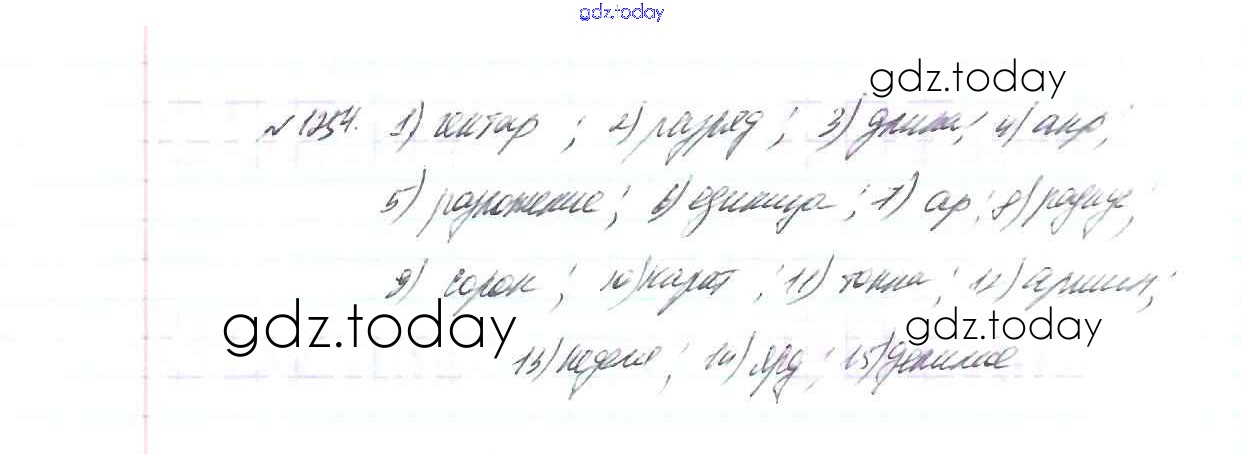 gdz.today
gdz.today
№1254. 1) гектар; 2) разряд; 3) длина; 4) акр;
5) разложение; 6) единица; 7) ар; 8) радиус;
9) сорок; 10) карат; 11) тонна; 12) аршин;
gdz.today
gdz.today
13) неделя; 14) ярд; 15) делимое